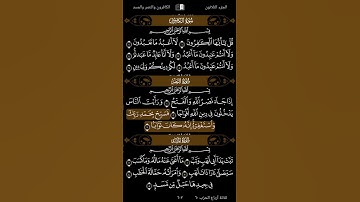 الجزء الثلاثون الكافرون والنصر والمسد
سُورَةُ الكَافِرُونَ
بِسْمِ ٱللَّهِ ٱلرَّحْمَٰنِ ٱلرَّحِيمِ
قُلْ يَٰٓأَيُّهَا ٱلْكَٰفِرُونَ ١ لَآ أَعْبُدُ مَا تَعْبُدُونَ ٢
وَلَآ أَنتُمْ عَٰبِدُونَ مَآ أَعْبُدُ ٣ وَلَآ أَنَا۠ عَابِدٌ مَّا عَبَدتُّمْ ٤
وَلَآ أَنتُمْ عَٰبِدُونَ مَآ أَعْبُدُ ٥ لَكُمْ دِينُكُمْ وَلِيَ دِينِ ٦
سُورَةُ النَّصْرِ
بِسْمِ ٱللَّهِ ٱلرَّحْمَٰنِ ٱلرَّحِيمِ
إِذَا جَآءَ نَصْرُ ٱللَّهِ وَٱلْفَتْحُ ١ وَرَأَيْتَ ٱلنَّاسَ
يَدْخُلُونَ فِي دِينِ ٱللَّهِ أَفْوَاجًا ٢ فَسَبِّحْ بِحَمْدِ رَبِّكَ
وَٱسْتَغْفِرْهُ إِنَّهُۥ كَانَ تَوَّابًۢا ٣
سُورَةُ المَسَدِ
بِسْمِ ٱللَّهِ ٱلرَّحْمَٰنِ ٱلرَّحِيمِ
تَبَّتْ يَدَآ أَبِي لَهَبٍ وَتَبَّ ١ مَآ أَغْنَىٰ عَنْهُ مَالُهُۥ وَمَا كَسَبَ ٢
سَيَصْلَىٰ نَارًا ذَاتَ لَهَبٍ ٣ وَٱمْرَأَتُهُۥ حَمَّالَةَ ٱلْحَطَبِ ٤
فِي جِيدِهَا حَبْلٌ مِّن مَّسَدٍۭ ٥
ثلاثة أرباع الحزب ٦٠ ٦٠٣